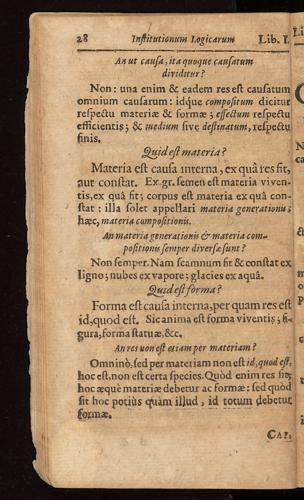 28 Institutionum Logicarum Lib. I.
An ut causa, ita quoque causatum
dividitur?
Non: una enim & eadem res est causatum
omnium causarum: idque compositum dicitur
respectu materiæ & formæ; effectum respectu
efficientis; & medium sive destinatum, respectu
finis.
Quid est materia?
Materia est causa interna, ex quâ res fit,
aut constat. Ex. gr. semen est materia viven-
tis, ex quâ fit; corpus est materia ex quâ con-
stat: illa solet appellari materia generationis;
hæc, materia compositionis.
An materia generationis & materia com-
positionis semper diversæ sunt?
Non semper. Nam scamnum fit & constat ex
ligno; nubes ex vapore; glacies ex aquâ.
Quid est forma?
Forma est causa interna, per quam res est
id, quod est. Sic anima est forma viventis; fi-
gura, forma statuæ, &c.
An res non est etiam per materiam?
Omninò. sed per materiam non est id, quod est,
hoc est, non est certa species. Quòd enim res sit,
hoc æquè materiæ debetur ac formæ: sed quòd
sit hoc potiùs quàm illud, id totum debetur
formæ.
CAP.